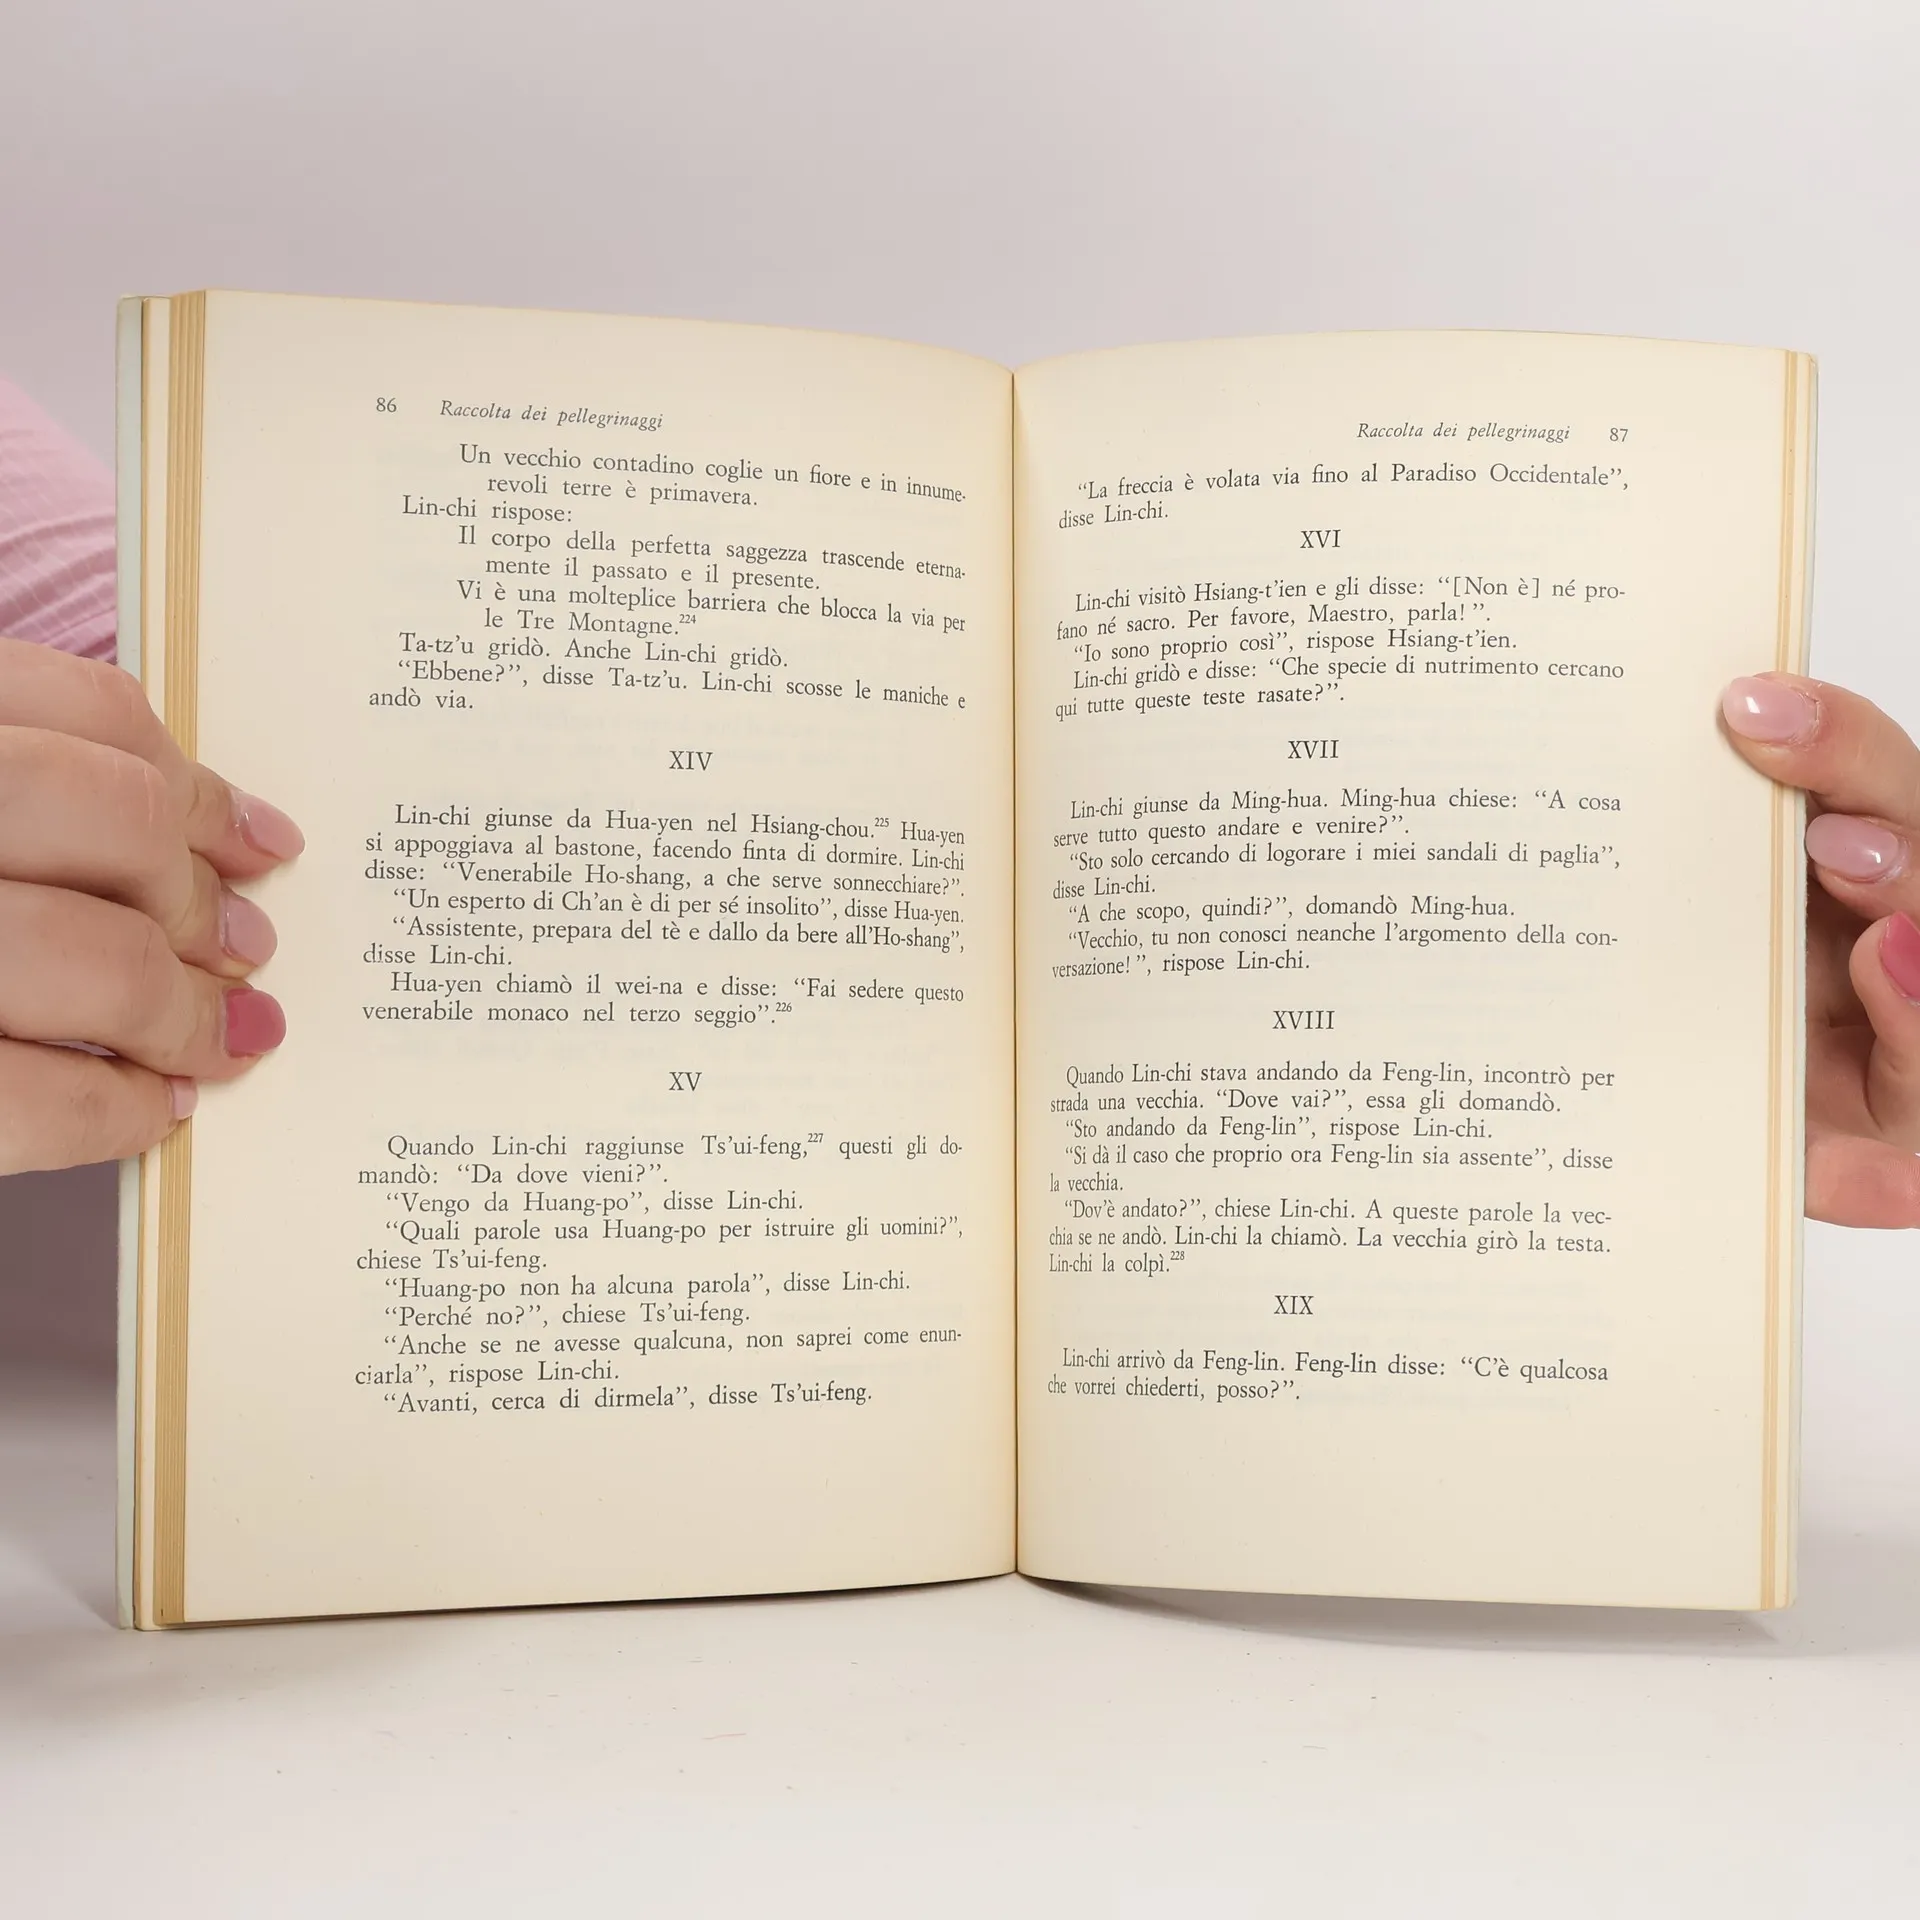 86 Raccolta dei pellegrinaggi
Un vecchio contadino coglie un fiore e in innume-
revoli terre è primavera.
Lin-chi rispose:
Il corpo della perfetta saggezza trascende eterna-
mente il passato e il presente.
Vi è una molteplice barriera che blocca la via per
le Tre Montagne.224
Ta-tz’u gridò. Anche Lin-chi gridò.
“Ebbene?”, disse Ta-tz’u. Lin-chi scosse le maniche e
andò via.
XIV
Lin-chi giunse da Hua-yen nel Hsiang-chou.225 Hua-yen
si appoggiava al bastone, facendo finta di dormire. Lin-chi
disse: “Venerabile Ho-shang, a che serve sonnecchiare?”.
“Un esperto di Ch’an è di per sé insolito”, disse Hua-yen.
“Assistente, prepara del tè e dallo da bere all’Ho-shang”,
disse Lin-chi.
Hua-yen chiamò il wei-na e disse: “Fai sedere questo
venerabile monaco nel terzo seggio”.226
XV
Quando Lin-chi raggiunse Ts’ui-feng,227 questi gli do-
mandò: “Da dove vieni?”.
“Vengo da Huang-po”, disse Lin-chi.
“Quali parole usa Huang-po per istruire gli uomini?”,
chiese Ts’ui-feng.
“Huang-po non ha alcuna parola”, disse Lin-chi.
“Perché no?”, chiese Ts’ui-feng.
“Anche se ne avesse qualcuna, non saprei come enun-
ciarla”, rispose Lin-chi.
“Avanti, cerca di dirmela”, disse Ts’ui-feng.
Raccolta dei pellegrinaggi 87
“La freccia è volata via fino al Paradiso Occidentale”,
disse Lin-chi.
XVI
Lin-chi visitò Hsiang-t’ien e gli disse: “[Non è] né pro-
fano né sacro. Per favore, Maestro, parla!”.
“Io sono proprio così”, rispose Hsiang-t’ien.
Lin-chi gridò e disse: “Che specie di nutrimento cercano
qui tutte queste teste rasate?”.
XVII
Lin-chi giunse da Ming-hua. Ming-hua chiese: “A cosa
serve tutto questo andare e venire?”.
“Sto solo cercando di logorare i miei sandali di paglia”,
disse Lin-chi.
“A che scopo, quindi?”, domandò Ming-hua.
“Vecchio, tu non conosci neanche l’argomento della con-
versazione!”, rispose Lin-chi.
XVIII
Quando Lin-chi stava andando da Feng-lin, incontrò per
strada una vecchia. “Dove vai?”, essa gli domandò.
“Sto andando da Feng-lin”, rispose Lin-chi.
“Si dà il caso che proprio ora Feng-lin sia assente”, disse
la vecchia.
“Dov’è andato?”, chiese Lin-chi. A queste parole la vec-
chia se ne andò. Lin-chi la chiamò. La vecchia girò la testa.
Lin-chi la colpì.228
XIX
Lin-chi arrivò da Feng-lin. Feng-lin disse: “C’è qualcosa
che vorrei chiederti, posso?”.